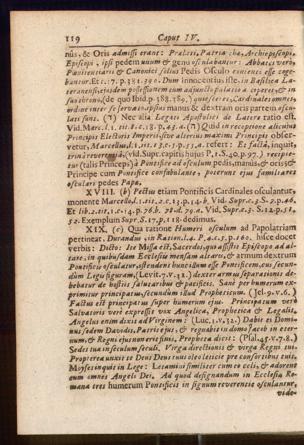 119 Caput IV.
nûs, & Oris admissi erant: Prælati, Patriarchæ, Archiepiscopi,
Episcopi, ipsi pedem unum & genu osculabantur: Abbates vero,
Pœnitentiarii & Canonici solius Pedis Osculo contenti esse cogebantur. Et c. 7. p. 381. 390. Dum Innocentius iste, in Basilica Lateranensi,
(de quo ibid. p. 188.
lati sunt. (7) Nec alia Legati Apostolici de Latere ratio est.
Vid. Marc. l. 1. sit. 8. c. 18. p. 42. a. (7) Quid in receptione alicuius
Principis Electoris Imperii, sive alterius maximi Principis observetur, Marcellus, l. 1. sit. 13. c. 5. p. 53. a. refert: Et facta, inquit,
trina reverentia, (vid. Supr. capitis hujus P. 1. S. 40. p. 97.) recipietur (talis Princeps) à Pontifice ad osculum pedis, manûs, & oris: &
Principe cum Pontifice confabulante, poterunt ejus familiares
osculari pedes Papæ.
XVIII. (b) Pectus etiam Pontificis Cardinales osculantur,
monente Marcello l. 1. sit. 2. c. 13. p. 14. b. Vid. Supr. c. 3. S. 2. p. 46.
Et lib. 2. tit. 1. c. 14. p. 76. b. 78. d. 79. a. Vid. Supr. c. 3. S. 12. p. 51.
52. Exemplum Supr. S. 17. p. 118. dedimus.
XIX. (c) Qua ratione Humeri osculum ad Papolatriam
pertineat. Durandus in Ration. l. 4. P. 4. c. 3. p. 160. hisce docet
verbis: Dicto: Ite Missa est, Sacerdos, qui assistit Episcopo ad altare, in quibusdam Ecclesiis mensam altaris, & armum dextrum
Pontificis osculatur, ostendens hunc illum esse Pontificem, cui secundum Legu figuram, (Levit. 7. v. 32.) dexter armus separationis debebatur de hostiis salutaribus & pacificis. Sane per humerum exprimitur principatus, secundum illud Propheticum. (Jes. 9. v. 6.)
Factus est principatus super humerum ejus. Principatum verò
Salvatoris verè expressit vox Angelica, Prophetica & Legalis.
Angelus enim dixit ad Virginem: (Luc. 1. v. 32.) Dabit ei Dominus sedem Davidis, Patris ejus, & regnabit in domo Jacob in eternum, & Regni ejus non erit finis. Prophetica dicit: (Psal. 45. v. 7. 8.)
Sedes tua in seculum seculi, Virga directionis & virga Regni tui.
Propterea unxit te Deus Deus tuus oleo leticie pre consortibus tuis.
Moyses inquit in Lege: Letamini simul licet cum eo celi, & adorent
eum omnes Angeli Dei. Ad quod designandum in Ecclesia Romana tres humerum Pontificis in signum reverentia osculantur,
vide-